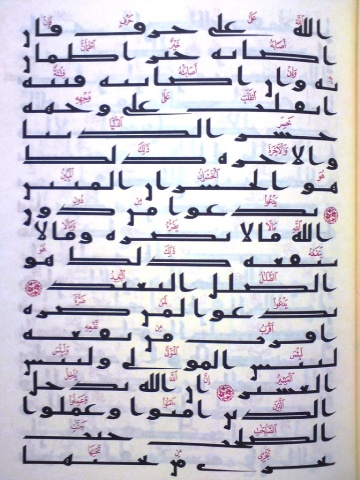 الله على حرف فان
اصابه خير اطمان
به وان اصابته فتنة
انقلب على وجهه
خسر الدنيا
والاخرة ذلك
هو الخسران المبين
يدعوا من دون
الله مالا يضره ومالا
ينفعه ذلك هو
الضلل البعيد
يدعوا لمن ضره
اقرب من نفعه
لبئس المولى ولبئس
العشير ان الله يدخل
الذين امنوا وعملوا
الصلحت جنت
تجرى من تحتها